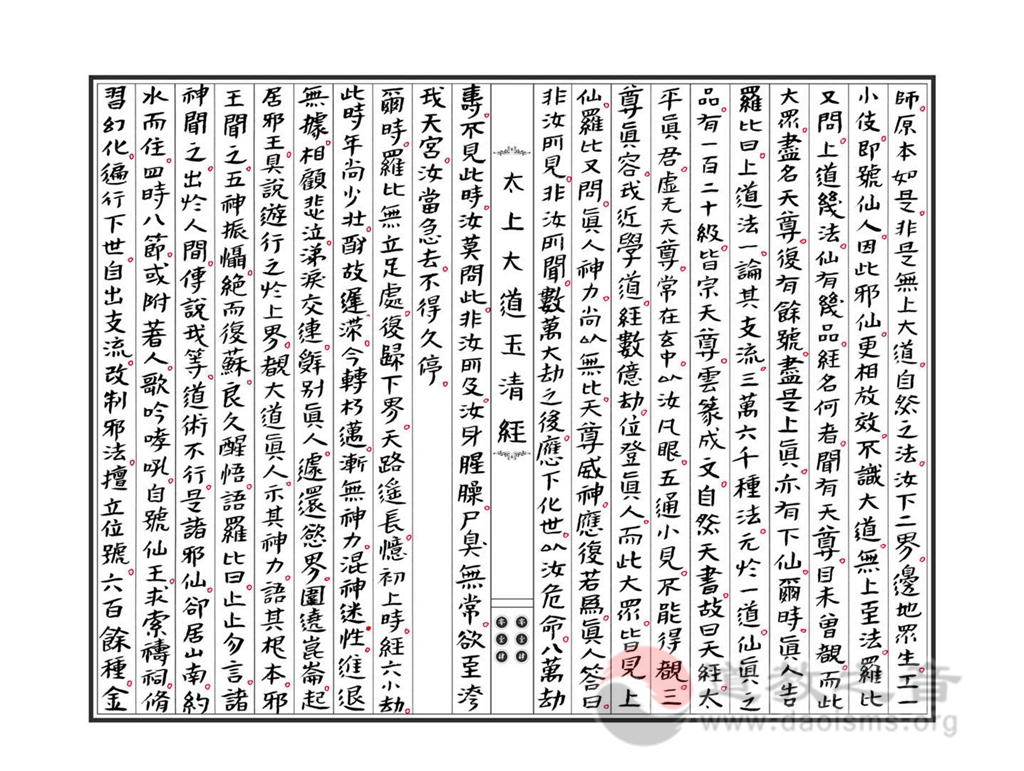 師原本如是非是無上大道自然之法汝下二界邊地眾生工一
小伎即號仙人因此邪仙更相放效不識大道無上至法羅比
又問上道幾法仙有幾品經名何者聞有天尊目未曾覩而此
大眾盡名天尊復有餘號盡是上真亦有下仙爾時真人告
羅比曰上道法一論其支流三萬六千種法元於一道仙真之
品有一百二十級皆宗天尊雲篆成文自然天書故曰天經太
平真君虛无天尊常在玄中以汝凡眼五通小見不能得覩三
尊真容我近學道經數億劫位登真人而此大眾皆見上
仙羅比又問真人神力尚以無比天尊威神應復若為真人答曰
非汝所見非汝所聞數萬大劫之後應下化世以汝危命八萬劫
太上大道玉清經
壽不見此時汝莫問此非汝所及汝身腥臊尸臭無常欲至洿
我天宮汝當急去不得久停
爾時羅比無立足處復歸下界天路遙長憶初上時經六小劫
此時年尚少壯酬故遲滯今轉朽邁漸無神力混神迷性進退
無據相顧悲泣涕淚交連辭別真人遽還慾界圍遶崑崙起
居邪王具說遊行之於上界覩大道真人示其神力語其根本邪
王聞之五神振懾絕而復蘇良久醒悟語羅比曰止止勿言諸
神聞之出於人間傳說我等道術不行是諸邪仙卻居山南約
水而住四時八節或附著人歌吟哮吼自號仙王求索禱祠脩
習幻化遍行下世自出支流改制邪法擅立位號六百餘種金
道教之音
www.daoisms.org